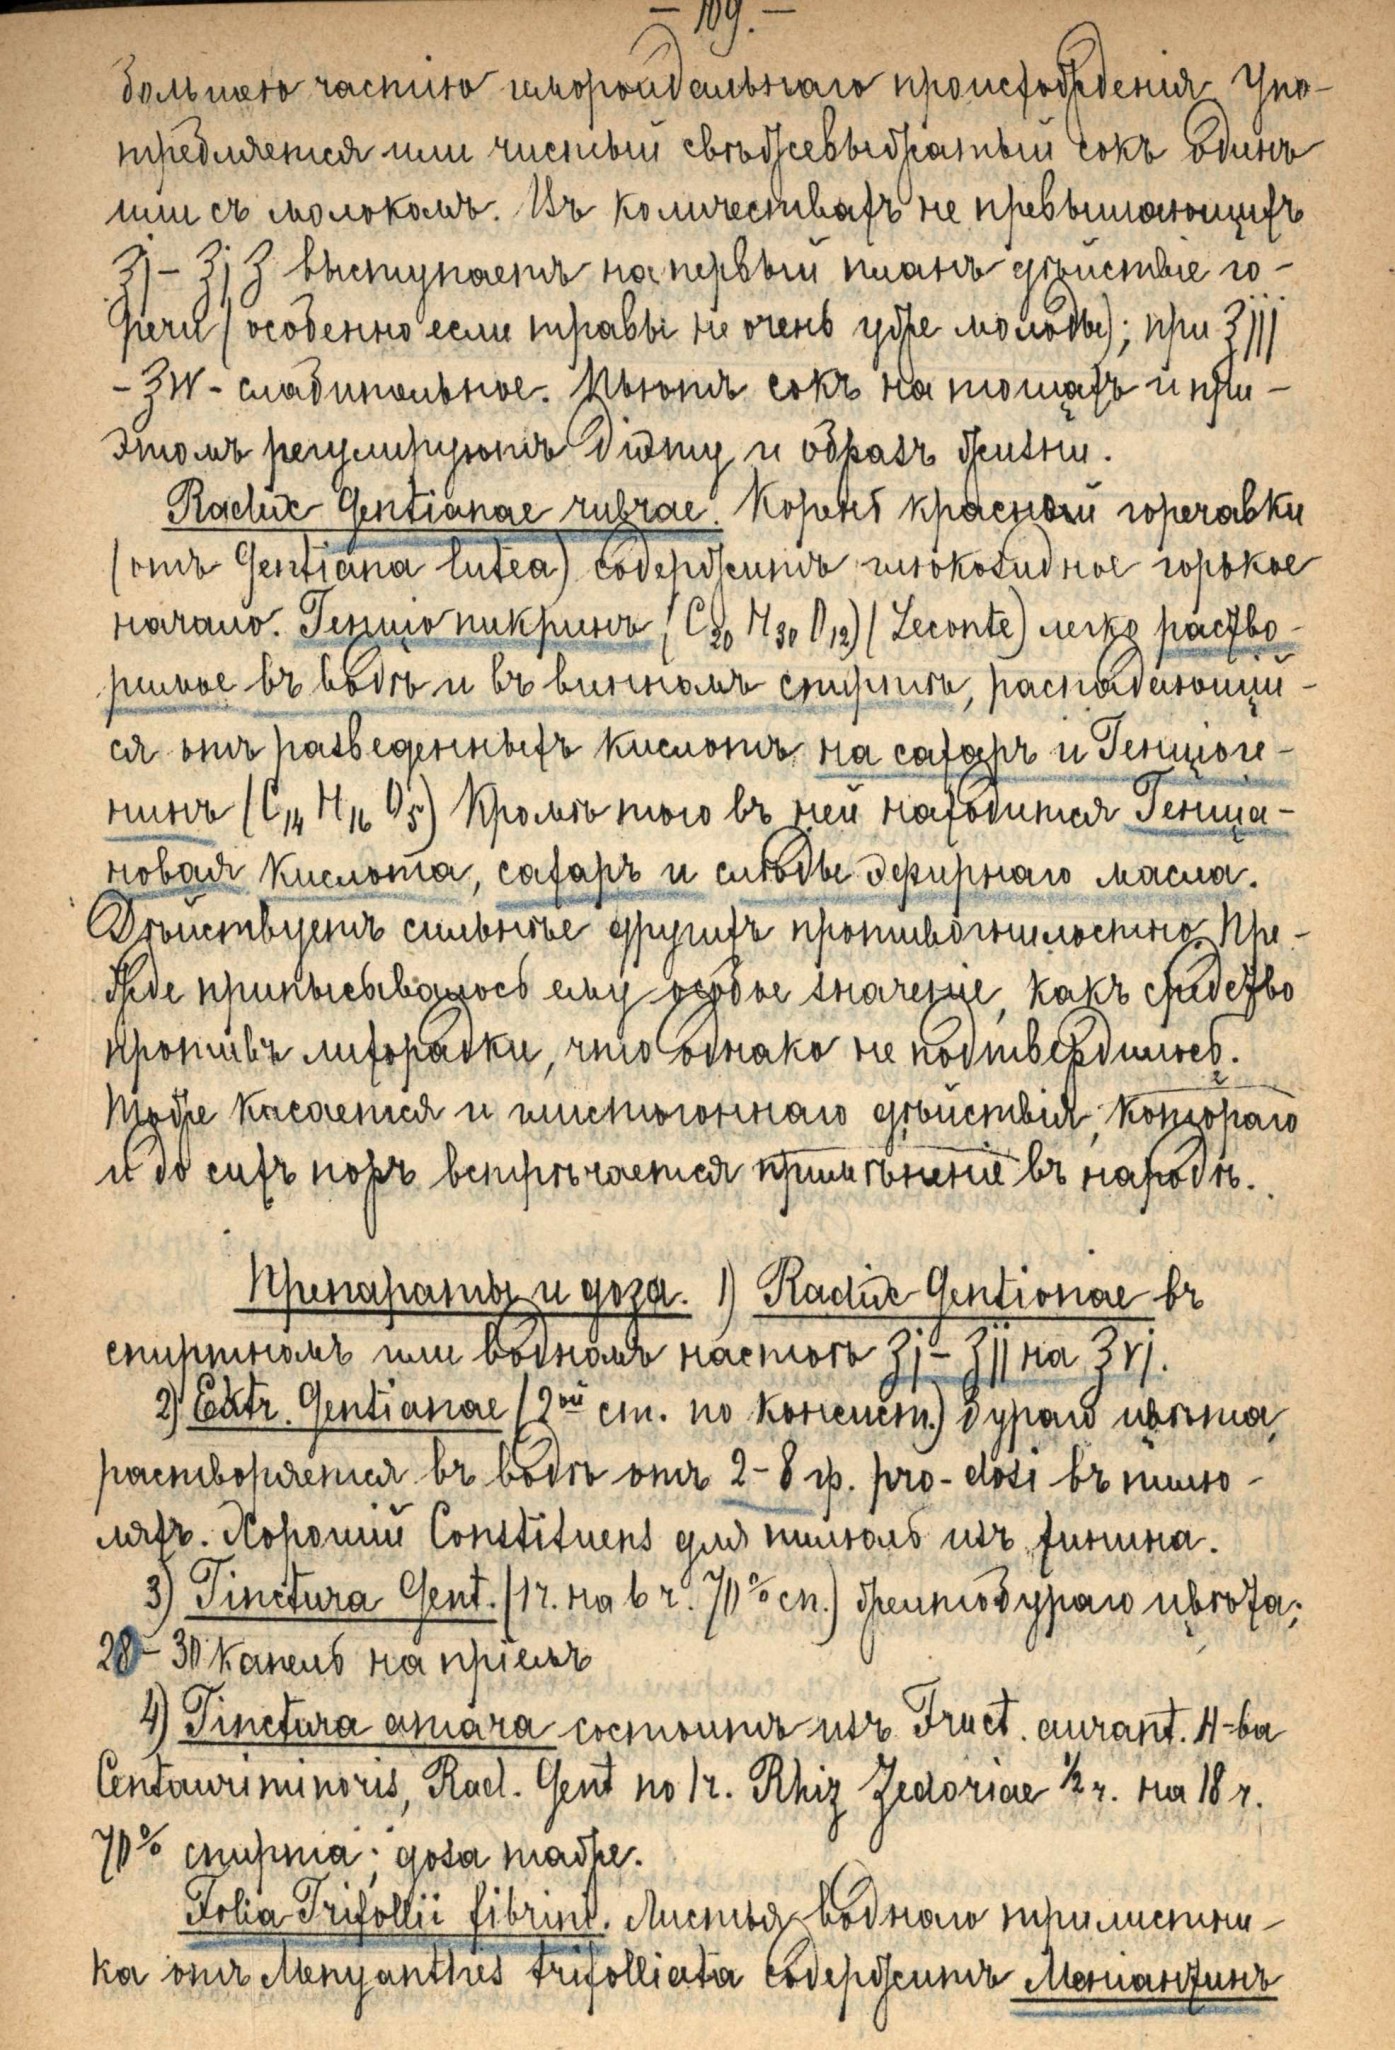 — 109. —
большею частію гемороидальнаго происхожденія. Упо-
требляется или чистый свѣжевыжатый сокъ одинъ
или съ молокомъ. Въ количествахъ не превышающихъ
ʒj – ʒjʒ выступаетъ на первый планъ дѣйствіе го-
речи (особенно если травы не очень уже молоды); при ʒjjj
– ʒIV – слабительное. Пьютъ сокъ на тощахъ и при-
этомъ регулируютъ діэту и образъ жизни.
Radix Gentianae rubrae. Корень красной горечавки
(отъ Gentiana lutea) содержитъ глюкозидное горькое
начало. Генціопикринъ (C20 H30 O12) (Leconte) легко раство-
римое въ водѣ и въ винномъ спиртѣ, распадающій-
ся отъ разведенныхъ кислотъ на сахаръ и Генціоге-
нинъ (C14 H16 O5) Кромѣ того въ ней находится Генціа-
новая кислота, сахаръ и слѣды эфирнаго масла.
Дѣйствуетъ сильнѣе другихъ противогнилостно. Пре-
жде приписывалось ему особое значеніе, какъ средство
противъ лихорадки, что однако не подтвердилось.
Тоже касается и глистогоннаго дѣйствія, котораго
и до сихъ поръ встрѣчается примѣненіе въ народѣ.
Препараты и доза. 1) Radix Gentianae въ
спиртномъ или водномъ настоѣ ʒj – ʒjj на ʒvj.
2) Extr. Gentianae (2ой ст. по консист.) бураго цвѣта,
растворяется въ водѣ отъ 2–8 гр. pro-dosi въ пилю-
ляхъ. Хорошій Constituens для пилюль изъ хинина.
3) Tinctura Gent. (1 ч. на 6 ч. 70% сп.) желтобураго цвѣта;
28–30 капель на пріемъ
4) Tinctura amara состоитъ изъ Fruct. aurant. H-ba
Centauri minoris, Rad. Gent по 1 ч. Rhiz Zedoriae ½ ч. на 18 ч.
70% спирта; доза таже.
Folia Trifollii fibrini. Листья воднаго трилистни-
ка отъ Menyanthes trifolliata содержитъ Меніантинъ